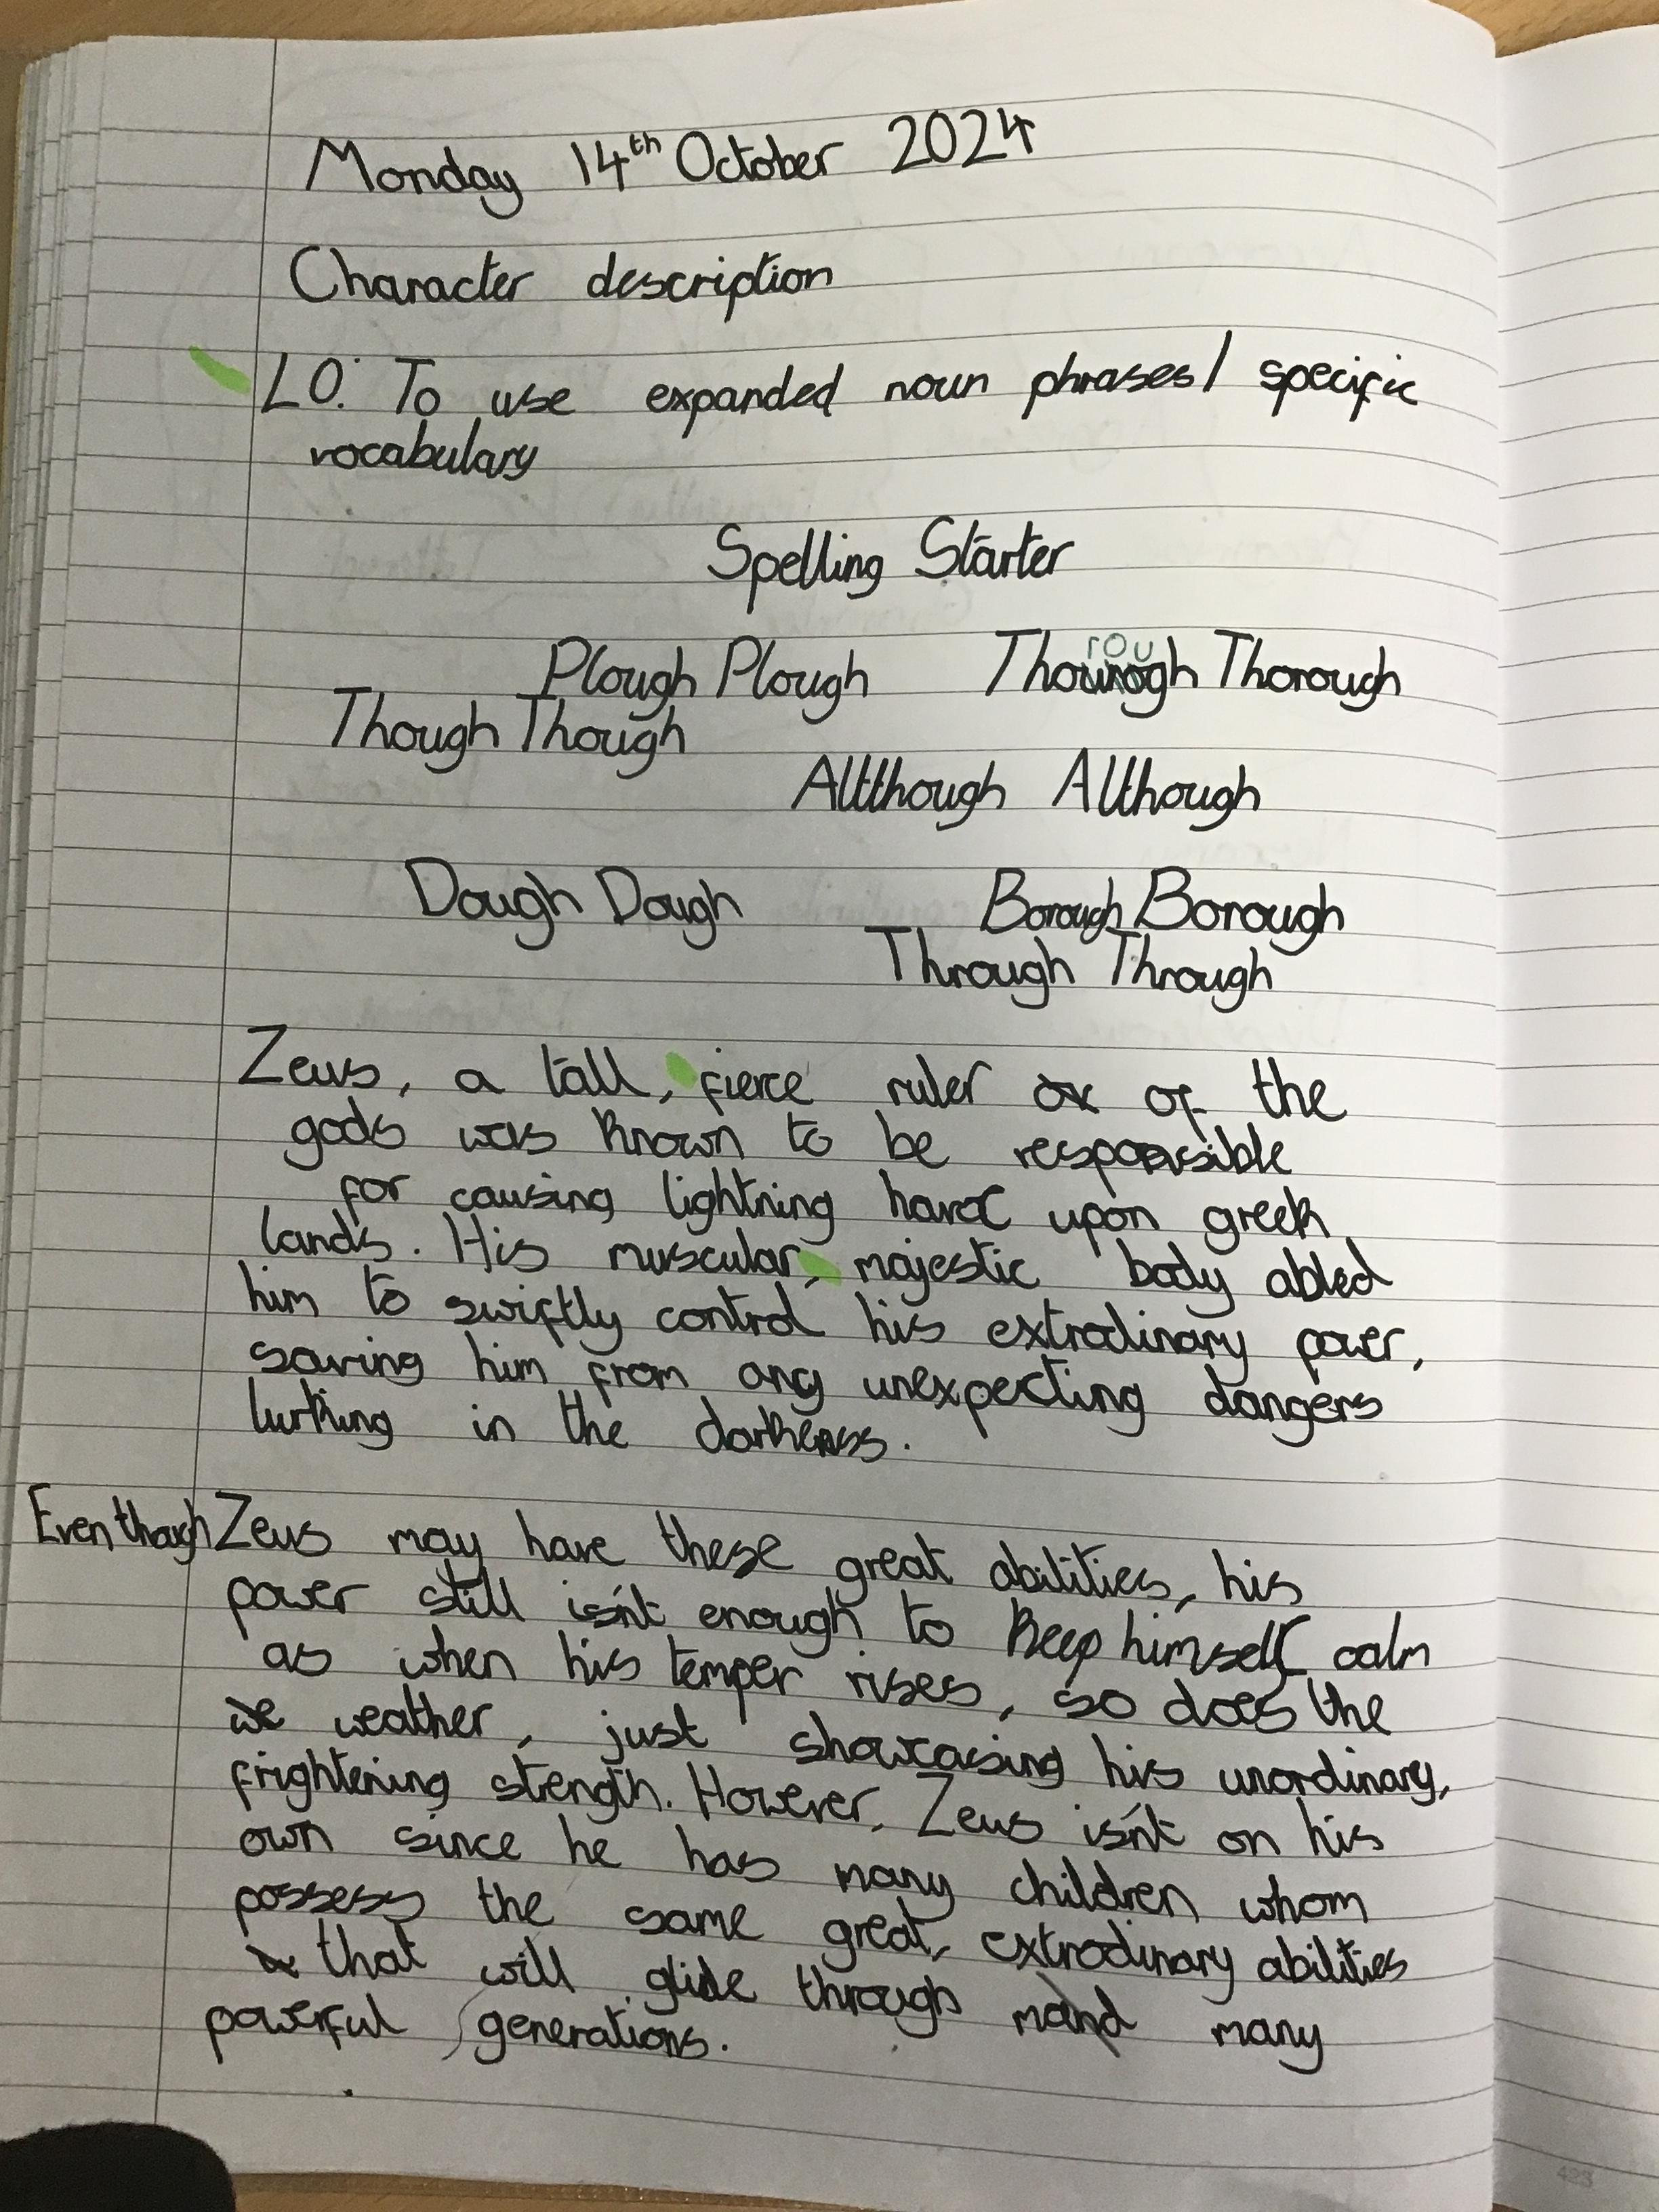 Monday 14th October 2024
Character description
LO: To use expanded noun phrases/ specific
vocabulary
Spelling Starter
Plough Plough Thorough Thorough
Though Though
Altthough Although
Dough Dough Borough Borough
Through Through
Zeus, a tall, fierce ruler of the
gods was known to be responsible
for causing lightning havoc upon greek
lands. His muscular, majestic body abled
him to swiftly control his extrodinary power,
saving him from any unexpecting dangers
lurking in the darkness.
Even though Zeus may have these great abilities, his
power still isn't enough to keep himself calm
as when his temper rises, so does the
weather, just showcasing his unordinary,
frightening strength. However, Zeus isn't on his
own since he has many children whom
possess the same great, extrodinary abilities
that will glide through many
powerful generations.
423